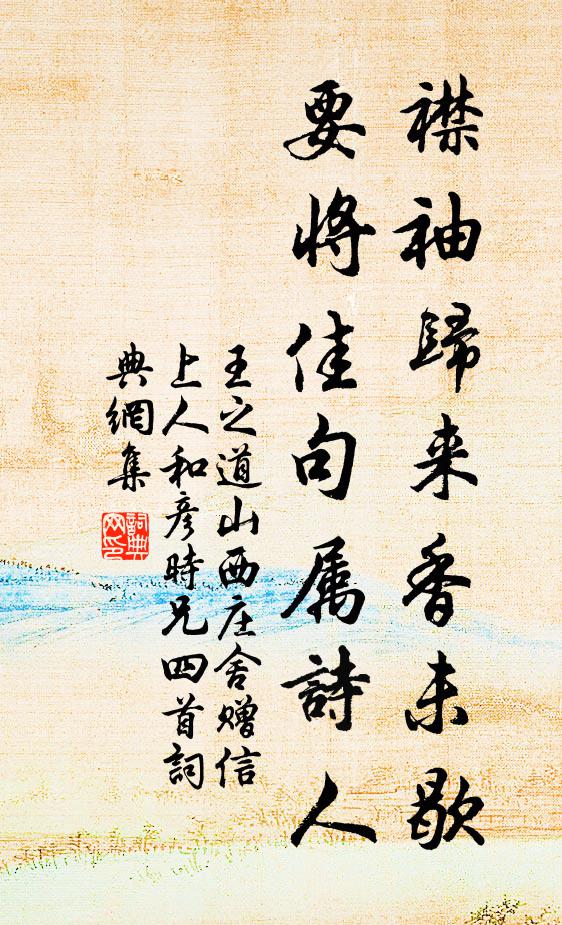 襟袖歸来香未歇
要將佳句属詩人
王之道山西庄舍赠信
上人和彦時兄四首詞
典網集
詞典
网印